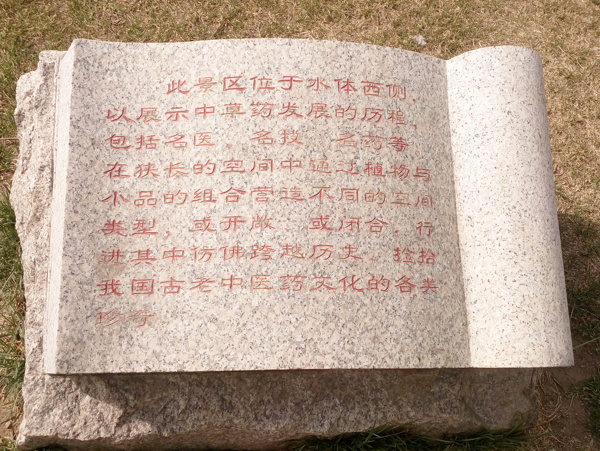 此景区位于水体西侧，
以展示中草药发展的历程，
包括名医、名技、名药等
在狭长的空间中通过植物与
小品的组合营造不同的空间
类型，或开敞、或闭合，行
进其中彷佛跨越历史，捡拾
我国古老中医药文化的各类
珍奇